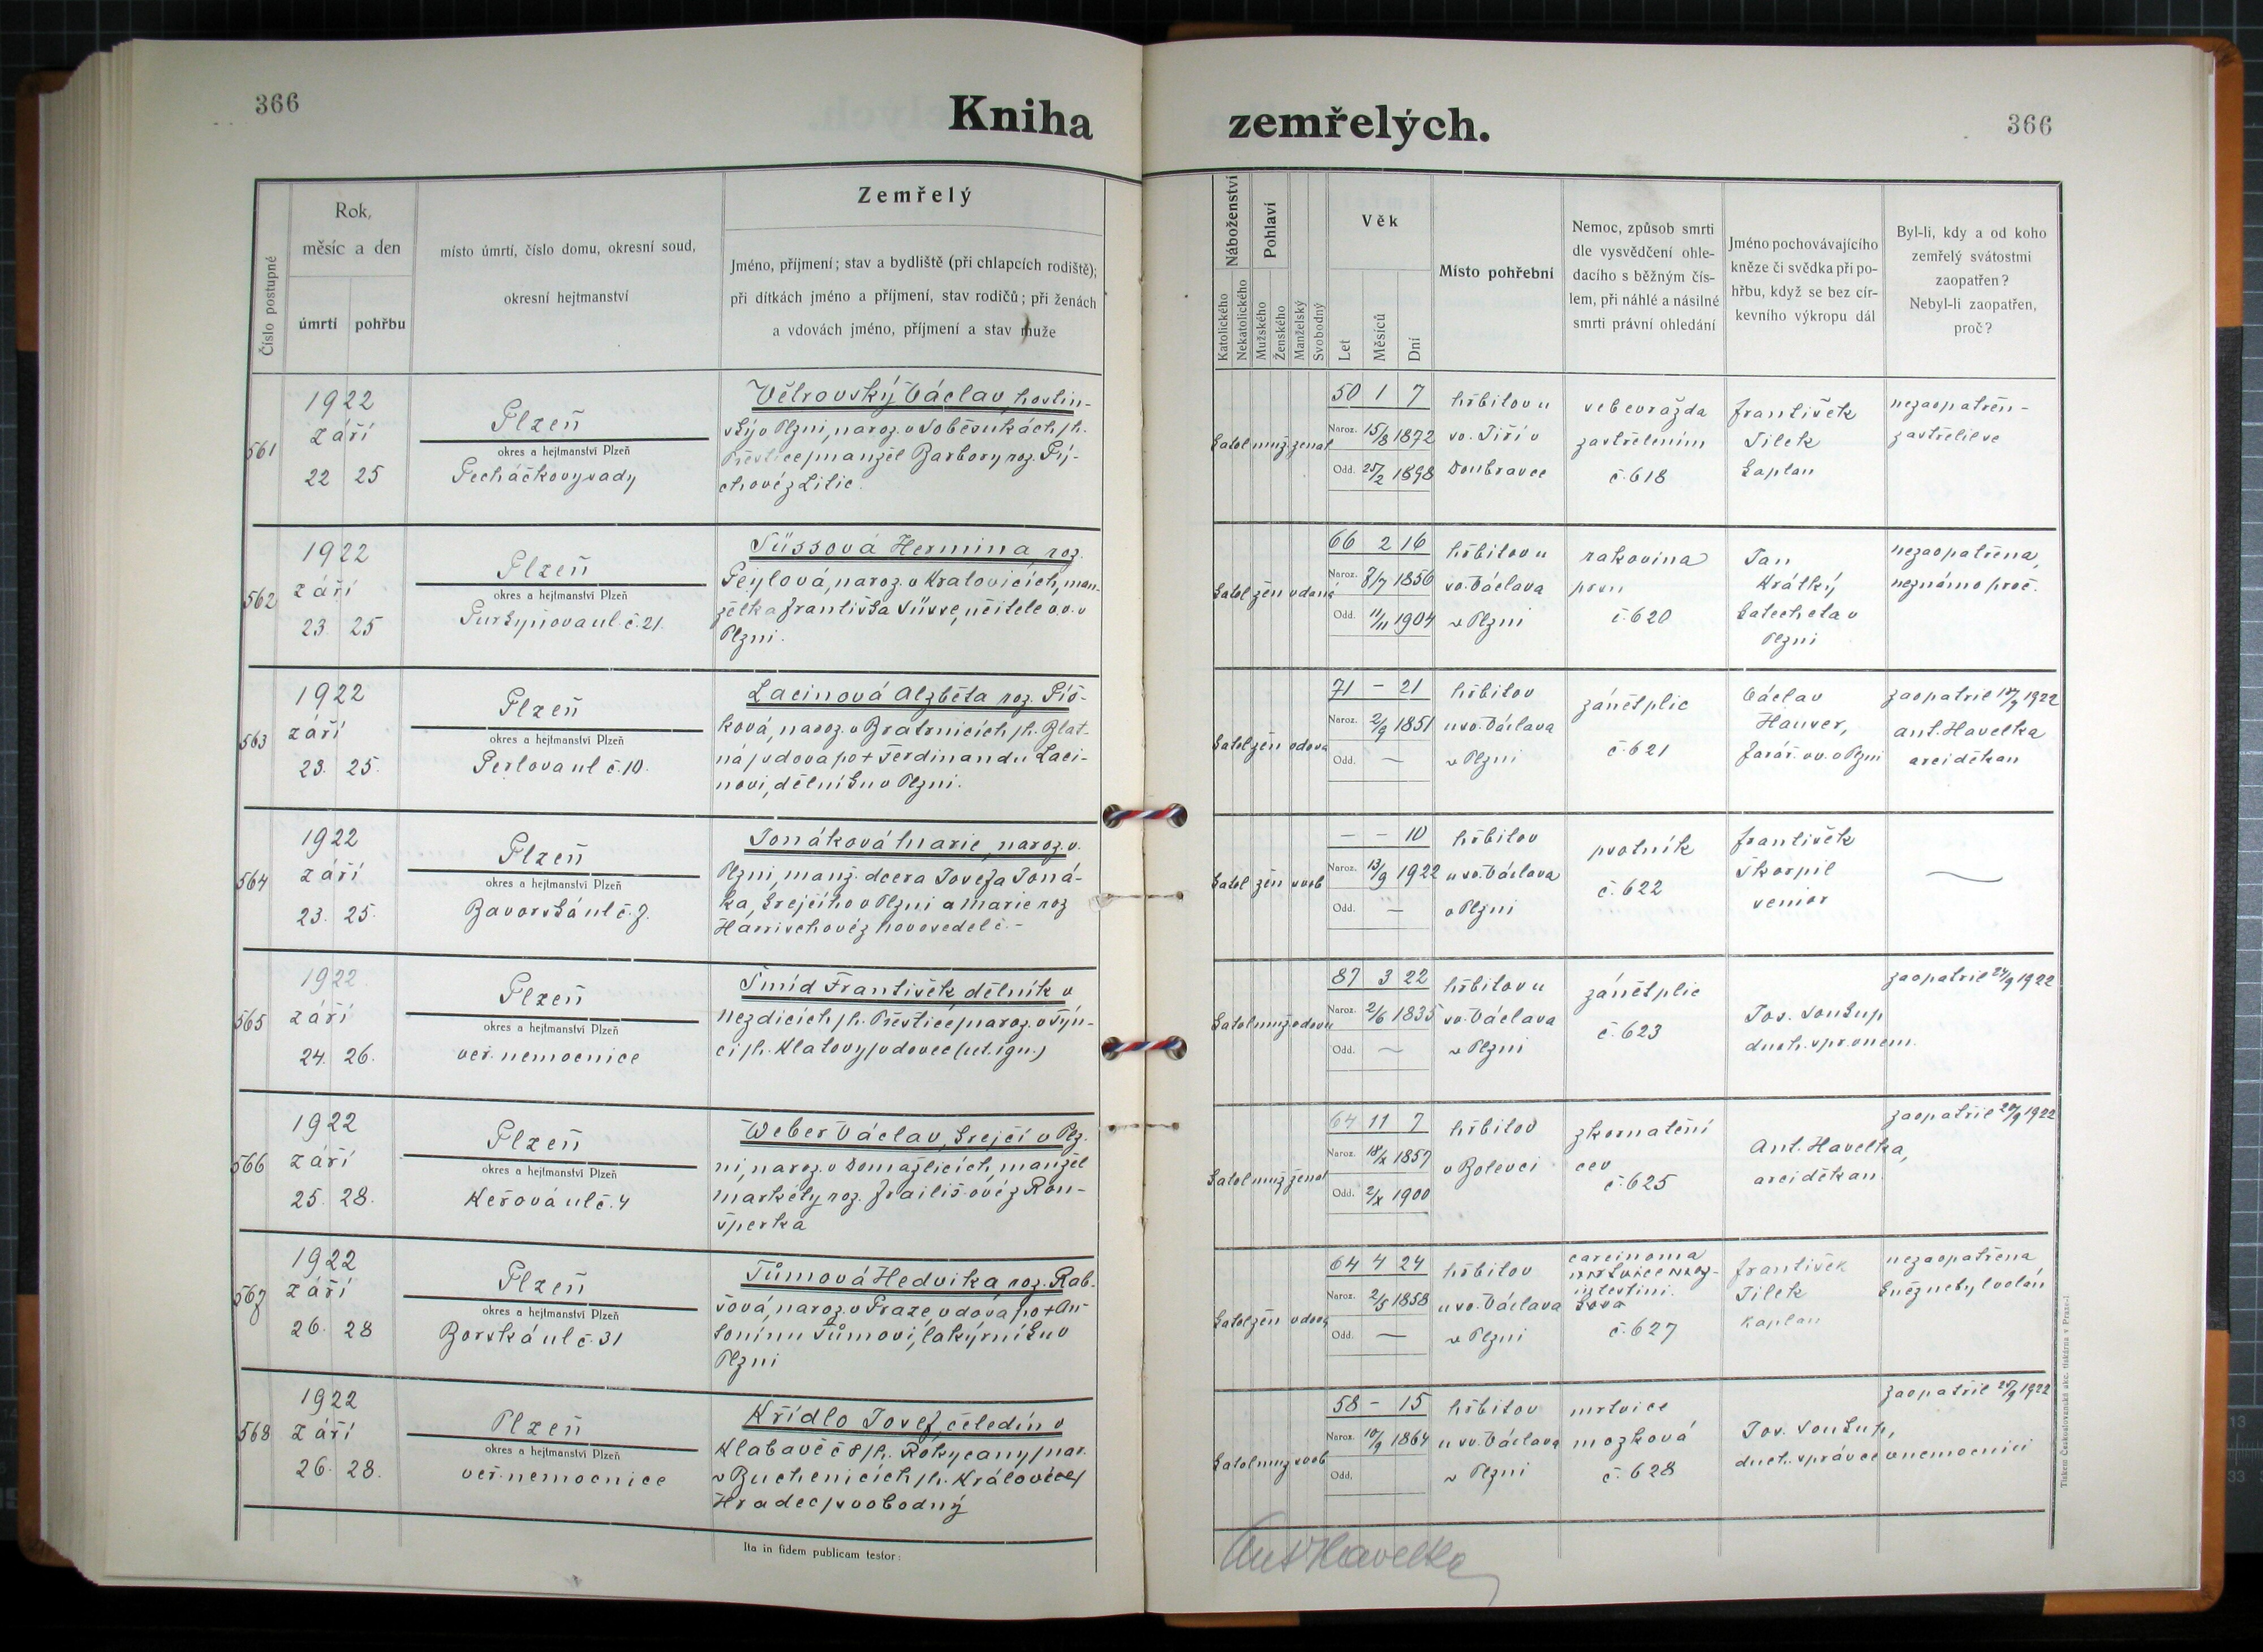 366
Kniha
zemřelých.
366
Číslo postupné
Rok,
měsíc a den
úmrtí
pohřbu
místo úmrtí, číslo domu, okresní soud,
okresní hejtmanství
Zemřelý
Jméno, příjmení; stav a bydliště (při chlapcích rodiště);
při dítkách jméno a příjmení, stav rodičů; při ženách
a vdovách jméno, příjmení a stav muže
Náboženství
Katolického
Nekatolického
Pohlaví
Mužského
Ženského
Manželský
Svobodný
Věk
Let
Měsíců
Dní
Místo pohřební
Nemoc, způsob smrti
dle vysvědčení ohle-
dacího s běžným čís-
lem, při náhlé a násilné
smrti právní ohledání
Jméno pochovávajícího
kněze či svědka při po-
hřbu, když se bez cír-
kevního výkropu dál
Byl-li, kdy a od koho
zemřelý svátostmi
zaopatřen?
Nebyl-li zaopatřen,
proč?
561
1922
září
22 25
Plzeň
okres a hejtmanství Plzeň
Pecháčkovy sady
Větrovský Václav, hostin-
ský v Plzni, naroz. v Soběsukách /h.
Přeštice/ manžel Barbory roz. Pý-
chové z Litic.
katol muž ženat
50 1 7
Naroz. 15/8 1872
Odd. 25/2 1898
hřbitov u
sv. Jiří v
Doubravce
sebevražda
zastřelením
č. 618
František
Jílek
kaplan
nezaopatřen-
zastřelil se
562
1922
září
23. 25
Plzeň
okres a hejtmanství Plzeň
Purkyňova ul. č. 21.
Süssová Hermina roz.
Peylová, naroz. v Kralovicích, man-
želka Františka Süsse, učitele v.v. v
Plzni.
katol žen vdaná
66 2 16
Naroz. 7/7 1856
Odd. 11/11 1904
hřbitov u
sv. Václava
v Plzni
rakovina
prsu
č. 620
Jan
Krátký,
katecheta v
Plzni
nezaopatřena,
neznámo proč.
563
1922
září
23. 25.
Plzeň
okres a hejtmanství Plzeň
Perlova ul č. 10.
Lacinová Alžběta roz. Piš-
ková, naroz. v Bratrnicích /h. Blat-
ná/ vdova po + Ferdinandu Laci-
novi, dělníku v Plzni.
katol žen vdova
71 - 21
Naroz. 2/9 1851
Odd. —
hřbitov
u sv. Václava
v Plzni
zánět plic
č. 621
Václav
Hauser,
farář. v.v. v Plzni
zaopatřil 1922
Ant. Havelka
arciděkan
564
1922
září
23. 25.
Plzeň
okres a hejtmanství Plzeň
Bavorská ul č. 7.
Jonáková Marie, naroz. v.
Plzni, manž. dcera Josefa Joná-
ka, krejčího v Plzni a Marie roz
Harrischové z Novosedel č. -
katol žen svob
- - 10
Naroz. 13/9 1922
Odd. —
hřbitov
u sv. Václava
v Plzni
psotník
č. 622
František
Škorpil
senior
565
1922
září
24. 26.
Plzeň
okres a hejtmanství Plzeň
veř. nemocnice
Šmíd František, dělník v
Nezdicích /h. Přeštice/ naroz. v Týn-
ci /h. Klatovy/ vdovec (ut. ign.)
katol muž vdov
87 3 22
Naroz. 2/6 1835
Odd. —
hřbitov u
sv. Václava
v Plzni
zánět plic
č. 623
Jos. Soukup
duch. spr. v nem.
zaopatřil 24/9 1922
566
1922
září
25. 28.
Plzeň
okres a hejtmanství Plzeň
Keřová ul č. 4
Weber Václav, krejčí v Plz-
ni, naroz. v Domažlicích, manžel
Markéty roz. Frailišové z Ron-
šperka
katol muž ženat
64 11 7
Naroz. 18/X 1857
Odd. 2/X 1900
hřbitov
v Bolevci
zkornatění
cev
č. 625
Ant. Havelka,
arciděkan.
zaopatřil 1922
567
1922
září
26. 28
Plzeň
okres a hejtmanství Plzeň
Borská ul č. 31
Tůmová Hedvika, roz. Rab-
šová, naroz. v Praze, vdova po + An-
tonínu Tůmovi, lakýrníku v
Plzni
katol žen vdova
64 4 24
Naroz. 2/5 1858
Odd. —
hřbitov
u sv. Václava
v Plzni
carcinoma
intestini.
č. 627
František
Jílek
kaplan
nezaopatřena
kněz nebyl volán
568
1922
září
26. 28.
Plzeň
okres a hejtmanství Plzeň
veř. nemocnice
Křídlo Josef, čeledín v
Klabavě č 8 /h. Rokycany/ nar.
v Buchenicích /h. Králové
Hradec/ svobodný
katol muž svob
58 - 15
Naroz. 10/9 1864
Odd.
hřbitov
u sv. Václava
v Plzni
mrtvice
mozková
č. 628
Jos. Soukup,
duch. správce v nemocnici
zaopatřil 1922
Ita in fidem publicam testor:
Ant Havelka
Tiskem Českoslovanské akc. tiskárny v Praze.